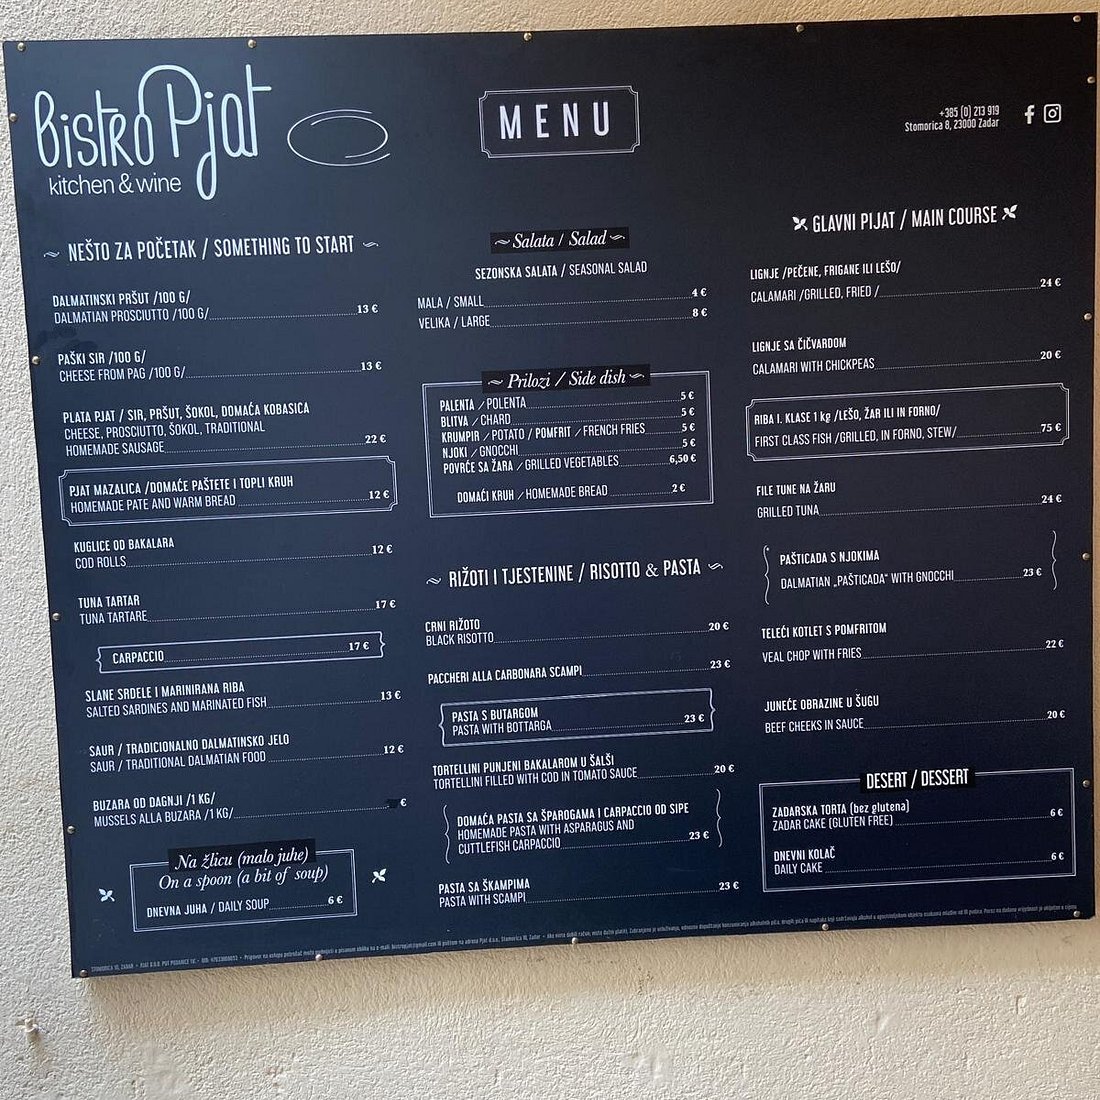 Bistro Pjat
kitchen & wine
MENU
+385 (0) 213 919
Stomorica 8, 23000 Zadar
NEŠTO ZA POČETAK / SOMETHING TO START
DALMATINSKI PRŠUT /100 G/
DALMATIAN PROSCIUTTO /100 G/ 13 €
PAŠKI SIR /100 G/
CHEESE FROM PAG /100 G/ 13 €
PLATA PJAT / SIR, PRŠUT, ŠOKOL, DOMAĆA KOBASICA
CHEESE, PROSCIUTTO, ŠOKOL, TRADITIONAL
HOMEMADE SAUSAGE 22 €
PJAT MAZALICA /DOMAĆE PAŠTETE I TOPLI KRUH
HOMEMADE PATE AND WARM BREAD 12 €
KUGLICE OD BAKALARA
COD ROLLS 12 €
TUNA TARTAR
TUNA TARTARE 17 €
CARPACCIO 17 €
SLANE SRDELE I MARINIRANA RIBA
SALTED SARDINES AND MARINATED FISH 13 €
SAUR / TRADICIONALNO DALMATINSKO JELO
SAUR / TRADITIONAL DALMATIAN FOOD 12 €
BUZARA OD DAGNJI /1 KG/
MUSSELS ALLA BUZARA /1 KG/ €
Na žlicu (malo juhe)
On a spoon (a bit of soup)
DNEVNA JUHA / DAILY SOUP 6 €
Salata / Salad
SEZONSKA SALATA / SEASONAL SALAD
MALA / SMALL 4 €
VELIKA / LARGE 8 €
Prilozi / Side dish
PALENTA / POLENTA 5 €
BLITVA / CHARD 5 €
KRUMPIR / POTATO / POMFRIT / FRENCH FRIES 5 €
NJOKI / GNOCCHI 5 €
POVRĆE SA ŽARA / GRILLED VEGETABLES 6,50 €
DOMAĆI KRUH / HOMEMADE BREAD 2 €
RIŽOTI I TJESTENINE / RISOTTO & PASTA
CRNI RIŽOTO
BLACK RISOTTO 20 €
PACCHERI ALLA CARBONARA SCAMPI 23 €
PASTA S BUTARGOM
PASTA WITH BOTTARGA 23 €
TORTELLINI PUNJENI BAKALAROM U ŠALŠI
TORTELLINI FILLED WITH COD IN TOMATO SAUCE 20 €
DOMAĆA PASTA SA ŠPAROGAMA I CARPACCIO OD SIPE
HOMEMADE PASTA WITH ASPARAGUS AND
CUTTLEFISH CARPACCIO 23 €
PASTA SA ŠKAMPIMA
PASTA WITH SCAMPI 23 €
GLAVNI PIJAT / MAIN COURSE
LIGNJE /PEČENE, FRIGANE ILI LEŠO/
CALAMARI /GRILLED, FRIED / 24 €
LIGNJE SA ČIČVARDOM
CALAMARI WITH CHICKPEAS 20 €
RIBA I. KLASE 1 kg /LEŠO, ŽAR ILI IN FORNO/
FIRST CLASS FISH /GRILLED, IN FORNO, STEW/ 75 €
FILE TUNE NA ŽARU
GRILLED TUNA 24 €
PAŠTICADA S NJOKIMA
DALMATIAN „PAŠTICADA" WITH GNOCCHI 23 €
TELEĆI KOTLET S POMFRITOM
VEAL CHOP WITH FRIES 22 €
JUNEĆE OBRAZINE U ŠUGU
BEEF CHEEKS IN SAUCE 20 €
DESERT / DESSERT
ZADARSKA TORTA (bez glutena)
ZADAR CAKE (GLUTEN FREE) 6 €
DNEVNI KOLAČ
DAILY CAKE 6 €